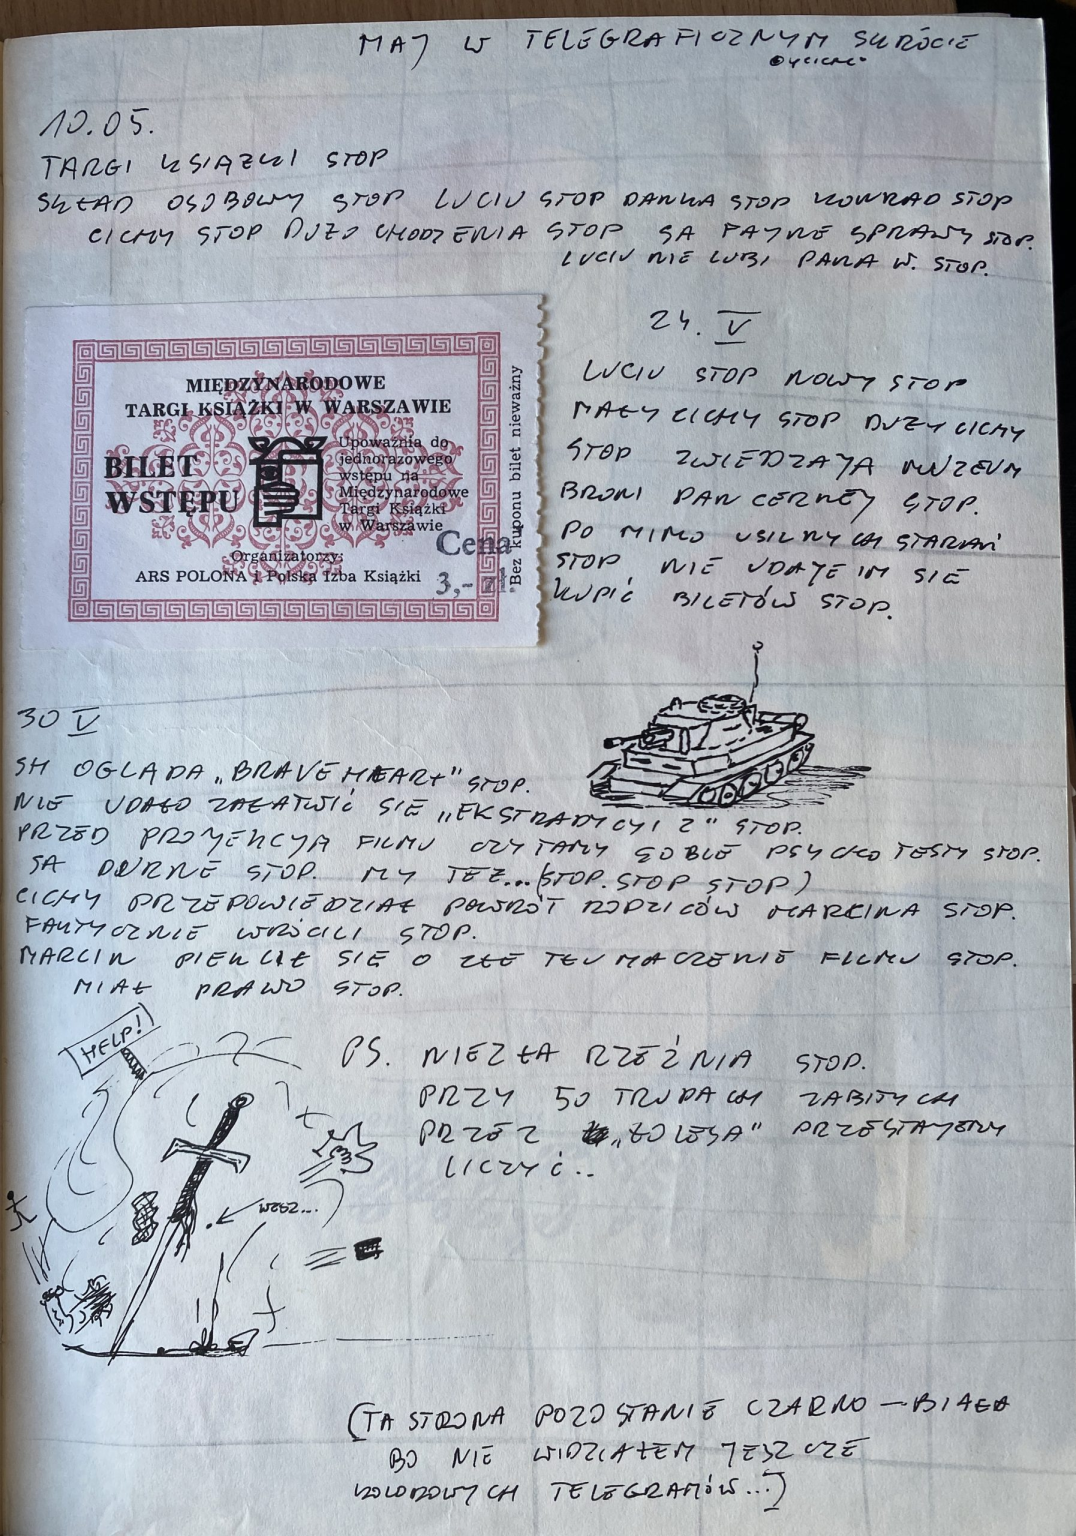 MAJ W TELEGRAFICZNYM SKRÓCIE
10.05.
TARGI KSIĄZKI STOP
SKŁAD OSOBOWY STOP LUCIU STOP DANKA STOP KONRAD STOP
CICHY STOP DUZO CHODZENIA STOP SA FAJNE SPRAWY STOP.
LUCIU NIE LUBI PANA W. STOP.
MIĘDZYNARODOWE
TARGI KSIĄŻKI W WARSZAWIE
BILET
WSTĘPU
Upoważnia do
jednorazowego
wstępu na
Międzynarodowe
Targi Książki
w Warszawie
Organizatorzy:
ARS POLONA i Polska Izba Książki
Cena
3,- zł
Bez kuponu bilet nieważny
24. V
LUCIU STOP NOWY STOP
MAŁY CICHY STOP DUZY CICHY
STOP ZWIEDZAJA MUZEUM
BRONI PANCERNEJ STOP.
PO MIMO USILNYCH STARAŃ
STOP NIE UDAJE IM SIE
KUPIĆ BILETÓW STOP.
30 V
SH OGLADA „BRAVE HEART" STOP.
NIE UDAŁO ZAŁATWIĆ SIE „EKSTRADYCJI 2" STOP.
PRZED PROJEKCJA FILMU CZYTAMY SOBIE PSYCHO TESTY STOP.
SA DURNE STOP. MY TEZ... (STOP. STOP STOP)
CICHY PRZEPOWIEDZIAŁ POWRÓT RODZICÓW MARCINA STOP.
FAKTYCZNIE WRÓCILI STOP.
MARCIN PIEKLIŁ SIE O ZŁE TŁUMACZENIE FILMU STOP.
MIAŁ PRAWO STOP.
HELP!
PS. NIEZŁA RZEŹNIA STOP.
PRZY 50 TRUPACH ZABITYCH
PRZEZ „ŁOLESA" PRZESTAJEMY
LICZYĆ..
(TA STRONA POZOSTANIE CZARNO — BIAŁA
BO NIE WIDZIAŁEM JESZCZE
KOLOROWYCH TELEGRAMÓW...)